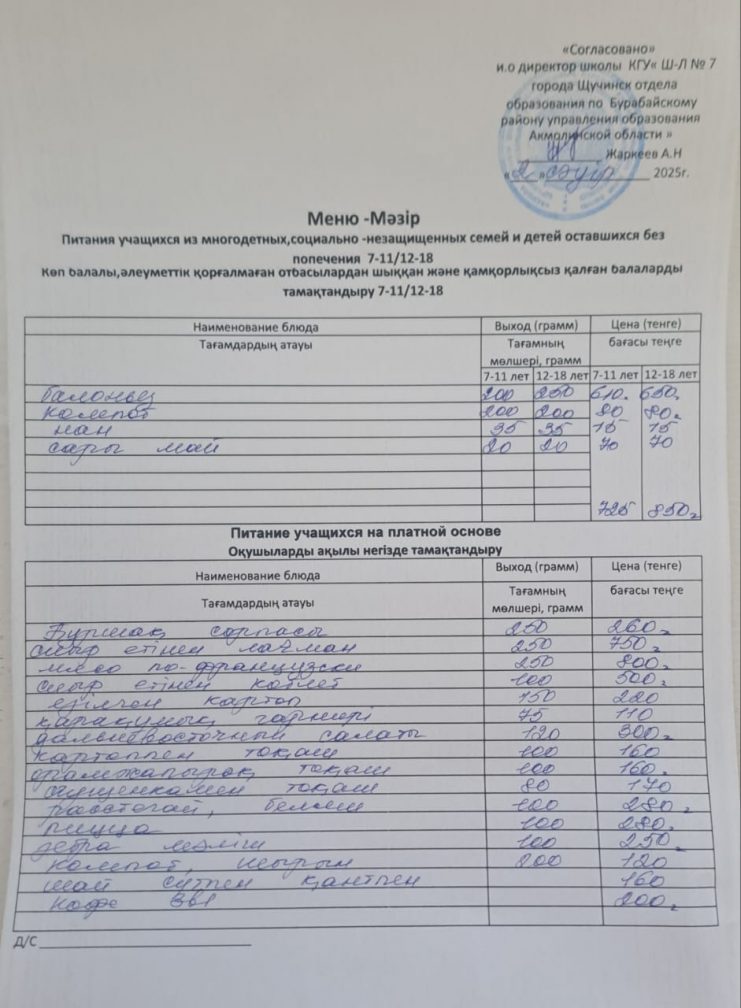 «Согласовано»
и.о директор школы КГУ« Ш-Л № 7
города Щучинск отдела
образования по Бурабайскому
району управления образования
Акмолинской области »
Жаркеев А.Н
«2» сәуір 2025г.
Меню -Мәзір
Питания учащихся из многодетных,социально -незащищенных семей и детей оставшихся без
попечения 7-11/12-18
Көп балалы,әлеуметтік қорғалмаған отбасылардан шыққан және қамқорлықсыз қалған балаларды
тамақтандыру 7-11/12-18
Наименование блюда Выход (грамм) Цена (тенге)
Тағамдардың атауы Тағамның мөлшері, грамм бағасы теңге
7-11 лет 12-18 лет 7-11 лет 12-18 лет
200 250 610. 650.
компот 200 200 80 80.
нан 35 35 15 15
сары май 20 20 70 70
725 850г
Питание учащихся на платной основе
Оқушыларды ақылы негізде тамақтандыру
Наименование блюда Выход (грамм) Цена (тенге)
Тағамдардың атауы Тағамның мөлшері, грамм бағасы теңге
Бұршақ сорпасы 250 260г
сиыр етінен лағман 250 750г
мясо по-французски 250 800г
сиыр етінен котлет 100 500г
езілген картоп 150 220
қарақұмық гарнирі 75 110
дальневосточный салаты 120 300г
картоппен тоқаш 100 160
орамжапырақ тоқаш 100 160.
сгущенкамен тоқаш 80 170
расстегай, беляш 100 280г
пицца 100 280.
зебра 100 250г
компот, шырын 200 120
шай сүтпен қантпен 160
кофе 3в1 200г
Д/С